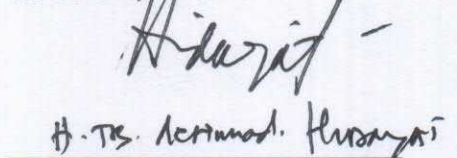 Hidayat
H. TB. Achmad. Hidayat